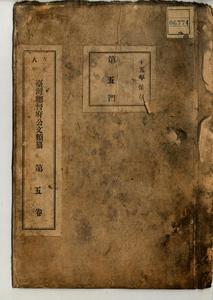 臺灣總督府公文類纂 第五卷
十五年保存
第五門
06774